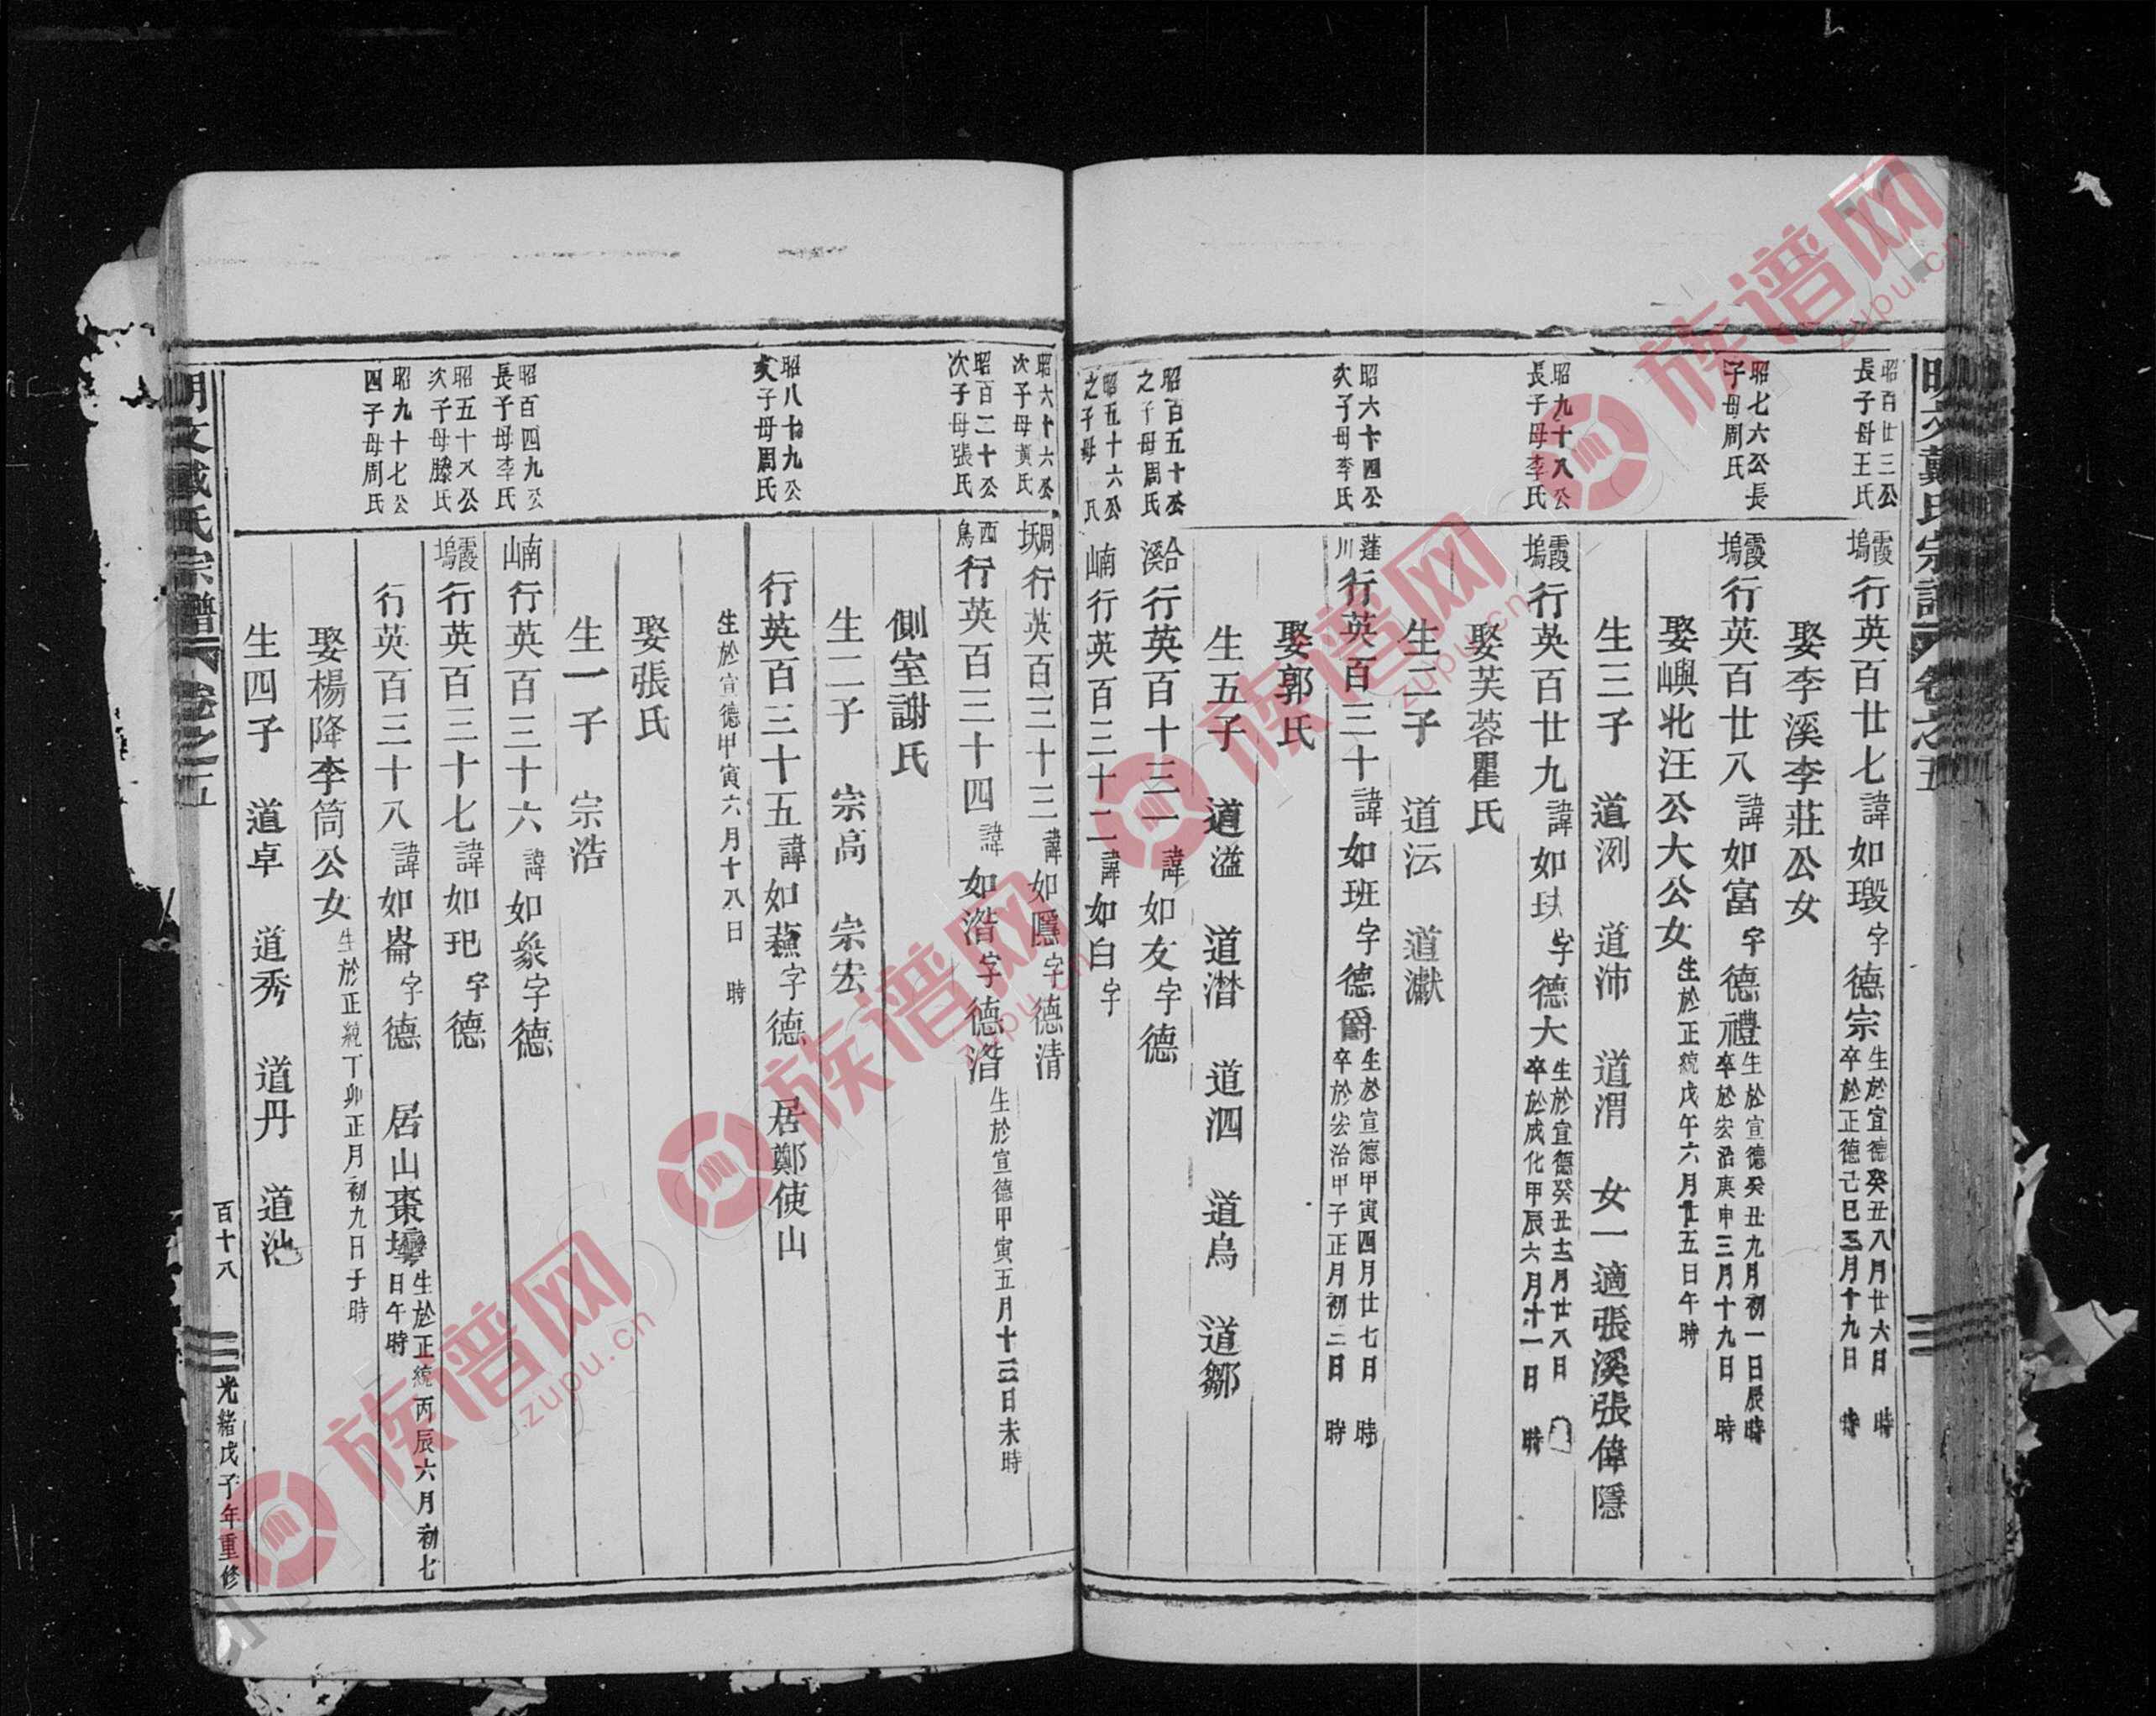 戴氏宗譜 卷之五
昭百廿三公
長子母王氏
霞塢 行英百廿七 諱如瑖 字德宗 生於宣德癸丑八月廿六日 時
卒於正德己巳三月十九日 時
娶李溪李莊公女
昭七六公長
子母周氏
霞塢 行英百廿八 諱如富 字德禮 生於宣德癸丑九月初一日辰時
卒於宏治庚申三月十九日 時
娶嶼北汪公大公女 生於正統戊午六月廿五日午時
生三子 道洌 道沛 道渭 女一適張溪張偉隱
昭九十八公
長子母李氏
霞塢 行英百廿九 諱如玞 字德大 生於宣德癸丑十二月廿八日
卒於成化甲辰六月十一日 時
娶芙蓉瞿氏
生二子 道沄 道瀛
昭六十四公
次子母李氏
蓬川 行英百三十 諱如班 字德爵 生於宣德甲寅四月廿七日 時
卒於宏治甲子正月初二日 時
娶郭氏
生五子 道溢 道潛 道泗 道鳥 道鄒
昭百五十公
之子母周氏
合溪 行英百十三一 諱如友 字德
昭五十六公
之子母 氏
嵨 行英百三十二 諱如白 字
昭六十六公
次子母黃氏
行英百三十三 諱如隱 字德清
昭百二十公
次子母張氏
西鳥 行英百三十四 諱如浩 字德浩 生於宣德甲寅五月十三日未時
側室謝氏
生二子 宗高 宗宏
昭八十九公
次子母周氏
行英百三十五 諱如蕪 字德 居鄭使山
生於宣德甲寅六月十八日 時
娶張氏
生一子 宗浩
昭百四九公
長子母李氏
行英百三十六 諱如象 字德
昭五十八公
次子母滕氏
霞塢 行英百三十七 諱如玘 字德
昭九十七公
四子母周氏
行英百三十八 諱如崙 字德 居山棗壇 生於正統丙辰六月初七
日午時
娶楊降李筒公女 生於正統丁卯正月初九日子時
生四子 道卓 道秀 道丹 道汕
明文戴氏宗譜 卷之五 百十八 光緒戊子年重修
族谱网
zupu.cn
族谱网
zupu.cn
族谱网
zupu.cn
族谱网
zupu.cn